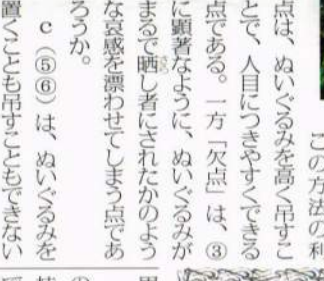 この方法の利
点は、ぬいぐるみを高く吊すこ
とで、人目につきやすくできる
点である。一方「欠点」は、③
に顕著なように、ぬいぐるみが
まるで晒し者にされたかのよう
な哀感を漂わせてしまう点であ
ろうか。
c（⑤⑥）は、ぬいぐるみを
置くことも吊すこともできない